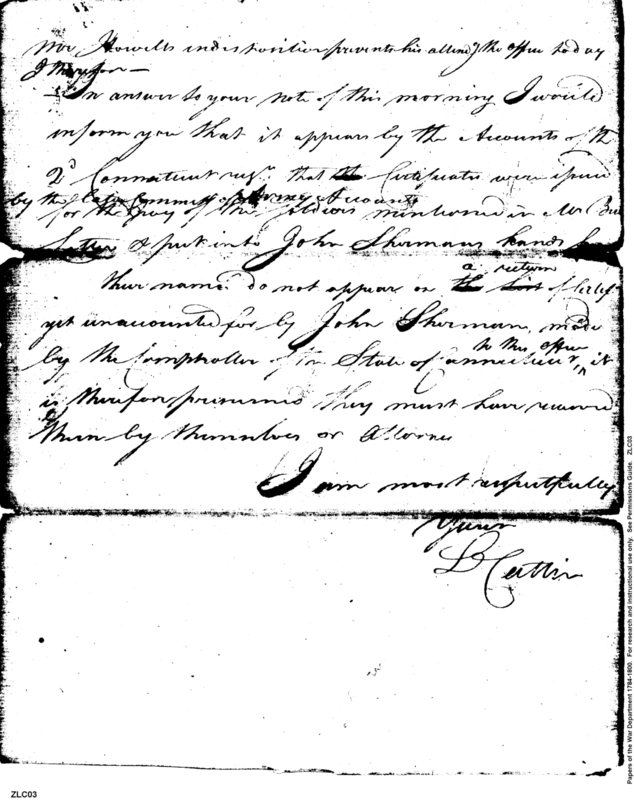 Mr Howells indisposition prevents his attendg the office today
I therefore —
In answer to your note of this morning I would
inform you that it appears by the Accounts of the
2d Connecticut regt. that Certificates were issued
by the late Commissr of Army Accounts
for the pay of the soldiers mentioned in Mr
Letter & put into John Shermans hands
Their names do not appear on a return of Certif
yet unaccounted for by John Sherman, made
by the Comptroller of the State of Connecticut to this office, it
is therefore presumed they must have received
them by themselves or Attorney
I am most respectfully
Yours
Cuttin
Papers of the War Department 1784-1800. For research and instructional use only. See Permissions Guide. ZLC03
ZLC03